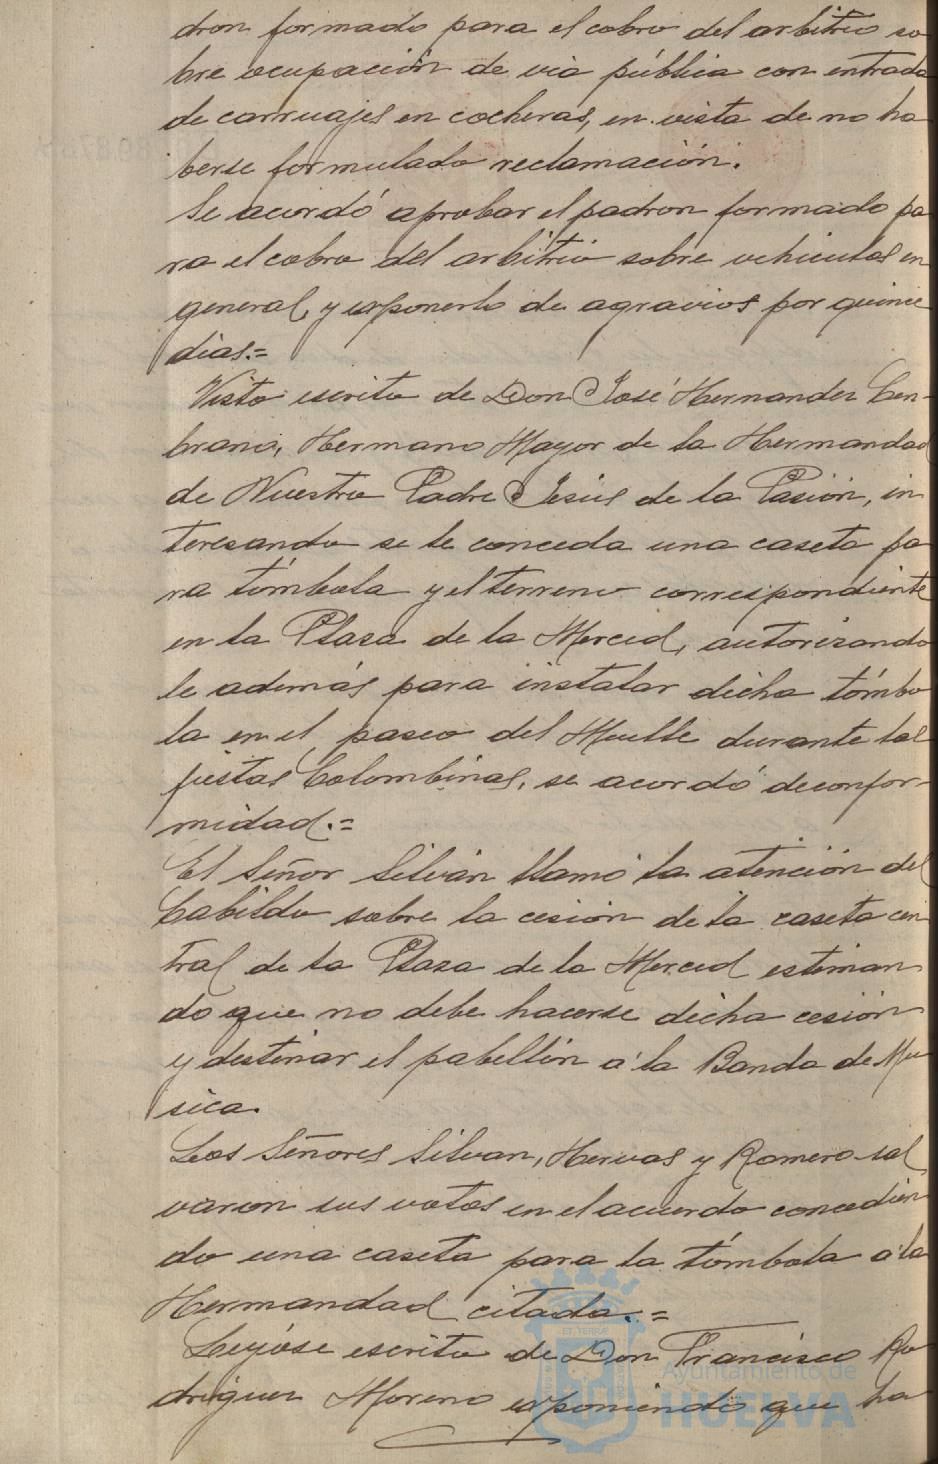 dron formado para el cobro del arbitrio so
bre ocupación de via pública con entrada
de carruajes en cocheras, en vista de no ha
berse formulado reclamación.
Se acordó aprobar el padron formado pa
ra el cobro del arbitrio sobre vehiculos en
general, y exponerlo de agravios por quince
dias.=
Visto escrito de Don José Hernandez Cen-
brano, Hermano Mayor de la Hermandad
de Nuestro Padre Jesús de la Pasión, in
teresando se le conceda una caseta pa
ra tómbola y el terreno correspondiente
en la Plaza de la Merced, autorizando
le además para instalar dicha tómbo
la en el paseo del Muelle durante las
fiestas Colombinas, se acordó de confor-
midad.=
El Señor Silván llamó la atención del
Cabildo sobre la cesión de la caseta cen
tral de la Plaza de la Merced estiman
do que no debe hacerse dicha cesión
y destinar el pabellón á la Banda de Mu
sica.
Los Señores Silvan, Hervas y Romero sal
varon sus votos en el acuerdo concedien
do una caseta para la tómbola á la
Hermandad citada.=
Leyóse escrito de Don Francisco Ro
driguez Moreno exponiendo que ha
Ayuntamiento de
HUELVA